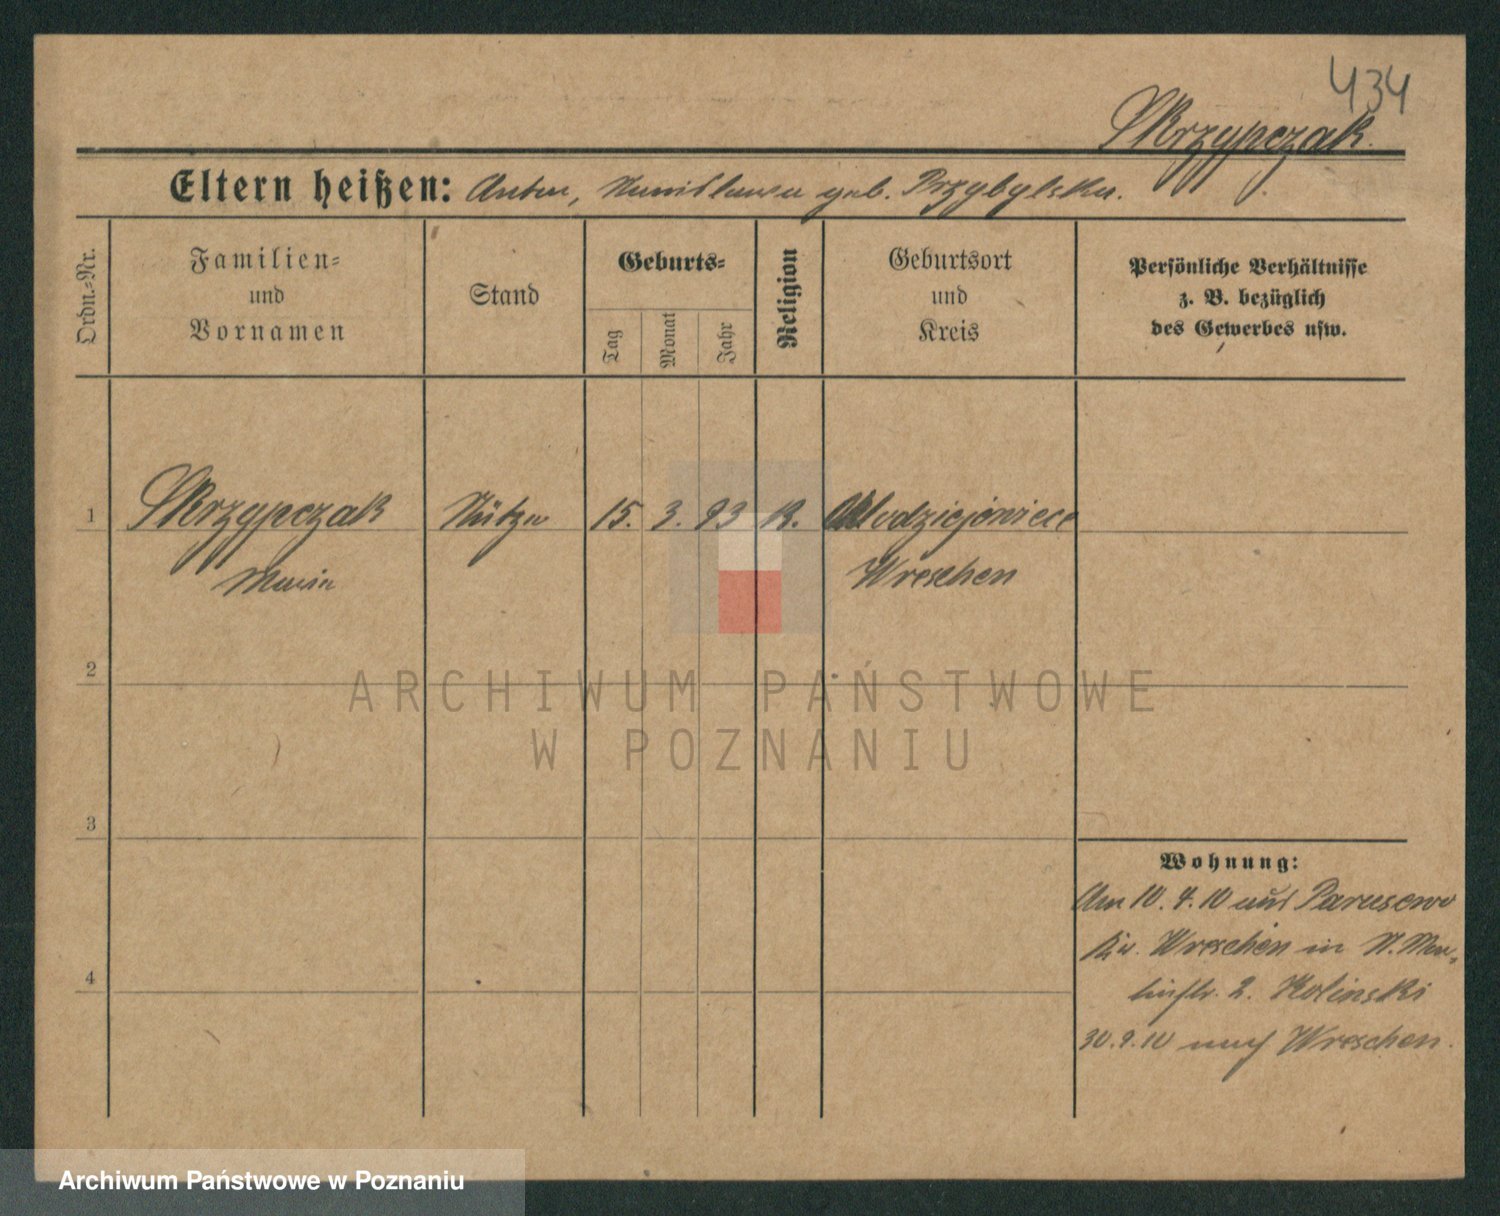 434
Skrzypczak.
Eltern heißen: Anton, Stanislawa geb. Przybylska.
Ordn.-Nr.
Familien-
und
Vornamen
Stand
Geburts-
Tag
Monat
Jahr
Religion
Geburtsort
und
Kreis
Persönliche Verhältnisse
z. B. bezüglich
des Gewerbes usw.
1 Skrzypczak 15. 3. 93 K.
Maria
Wreschen
2
3
4
Wohnung:
Am 10. 4. 10 aus
Kr. Wreschen in
2. Kolinski
30. 9. 10 nach Wreschen.
ARCHIWUM PAŃSTWOWE
W POZNANIU
Archiwum Państwowe w Poznaniu